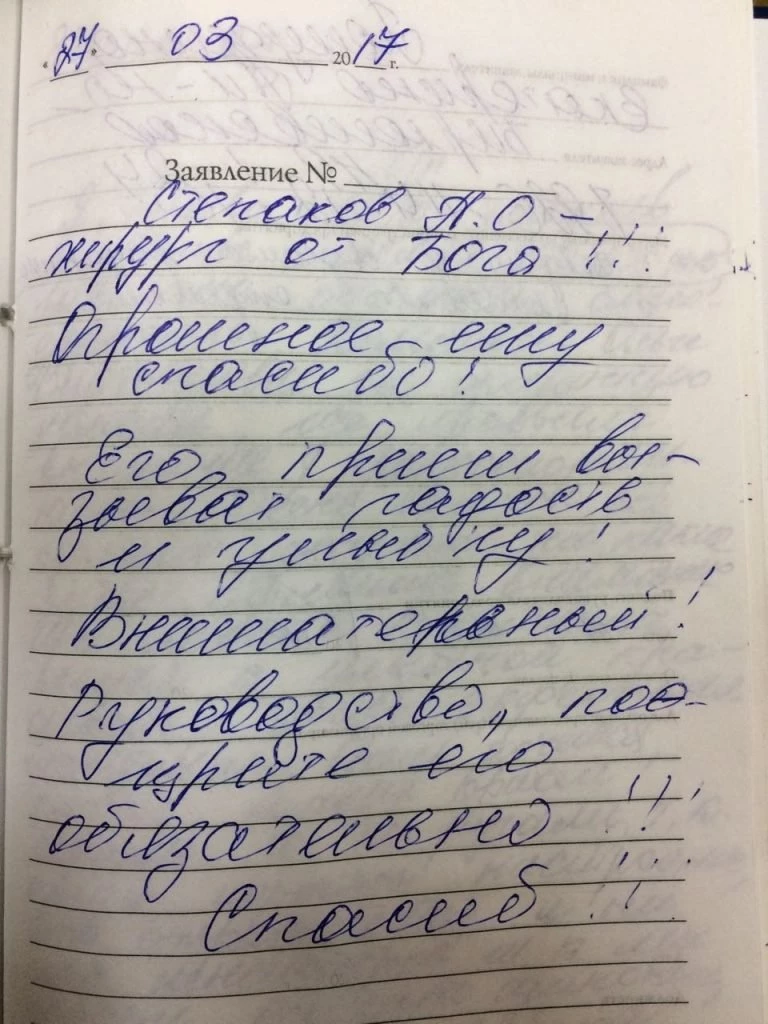 «27» 03 2017 г.
Заявление №
Степаков А.О –
хирург от Бога !!!
Огромное ему
спасибо!
Его прием вы-
зывает радость
и улыбку!
Внимательный!
Руководство, поо-
щрите его
обязательно !!!
Спасиб !!!